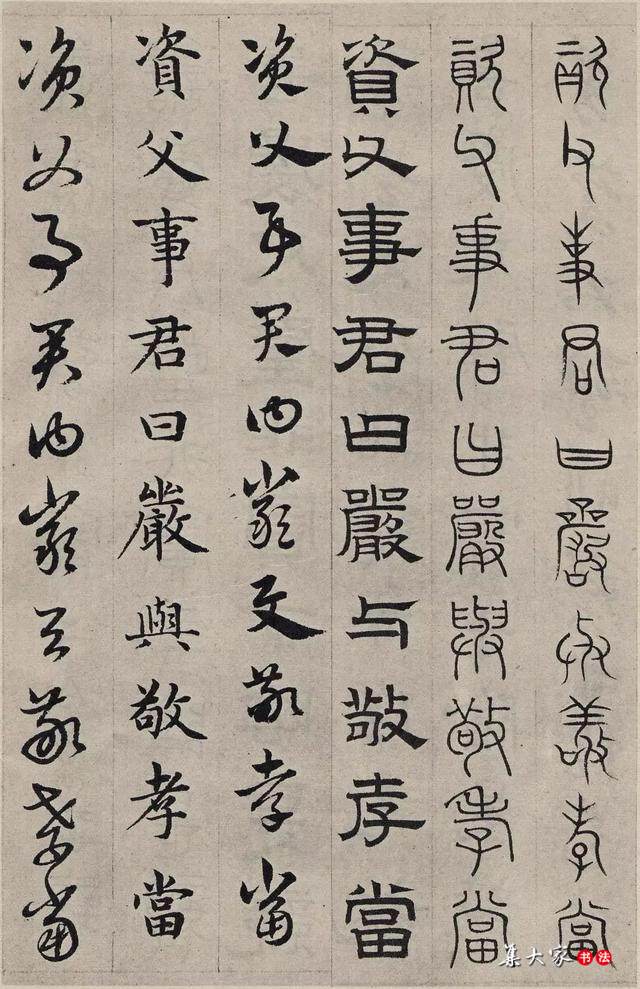 資父事君曰嚴與敬孝當
資父事君曰嚴與敬孝當
資父事君曰嚴与敬孝當
資父事君曰嚴與敬孝當
資父事君曰嚴與敬孝當
資父事君曰嚴與敬孝當
集大家书法